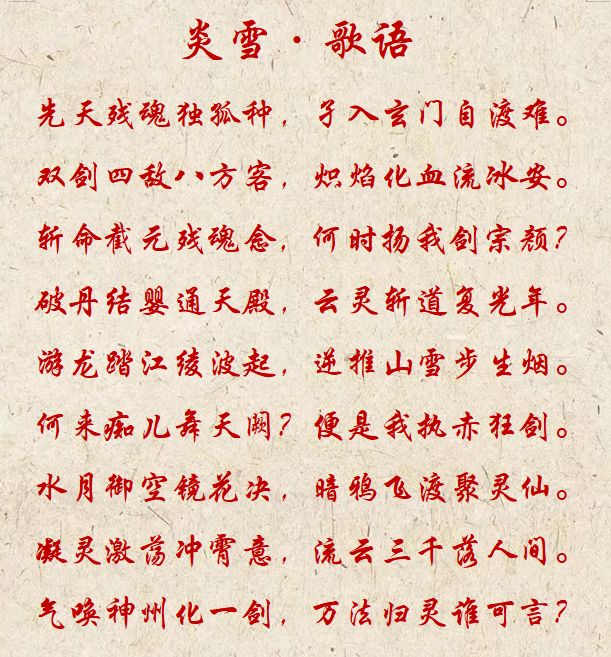 炎雪·歌语
先天残魂独孤种，孑入玄门自渡难。
双剑四敌八方客，炽焰化血流冰安。
斩命截元残魂念，何时扬我剑宗颜？
破丹结婴通天殿，云灵斩道复光年。
游龙踏江绫波起，逆推山雪步生烟。
何来痴儿舞天阙？便是我执赤狂剑。
水月御空镜花决，暗鸦飞渡聚灵仙。
凝灵激荡冲霄意，流云三千落人间。
气唤神州化一剑，万法归灵谁可言？